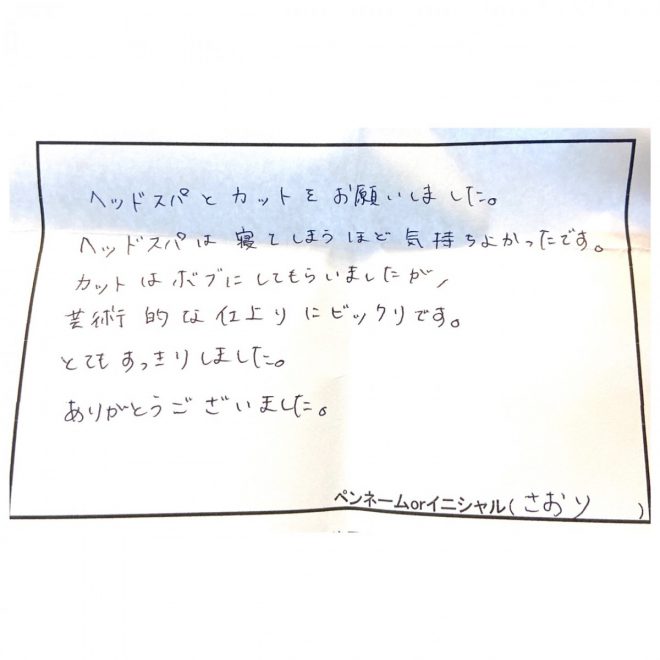 ヘッドスパとカットをお願いしました。
ヘッドスパは寝てしまうほど気持ちよかったです。
カットはボブにしてもらいましたが、
芸術的な仕上りにビックリです。
とてもすっきりしました。
ありがとうございました。
ペンネームorイニシャル(さおり)